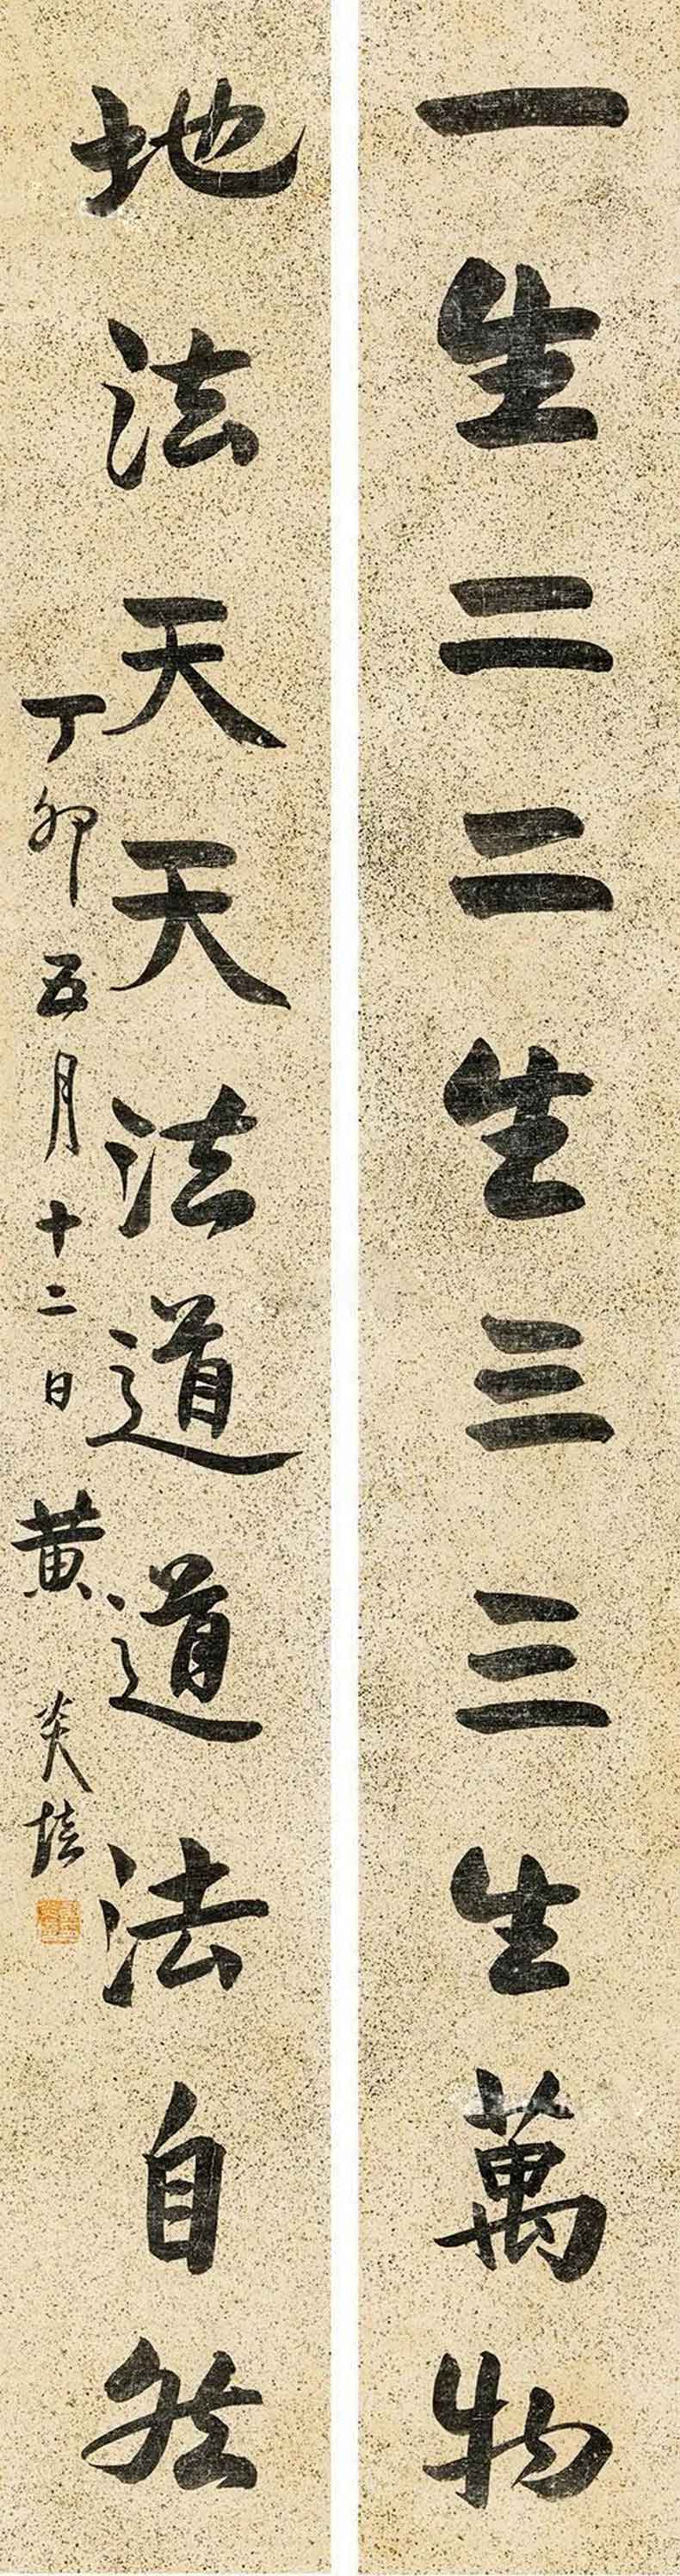 一生二二生三三生萬物
地法天天法道道法自然
丁卯五月十二日 黄炎培